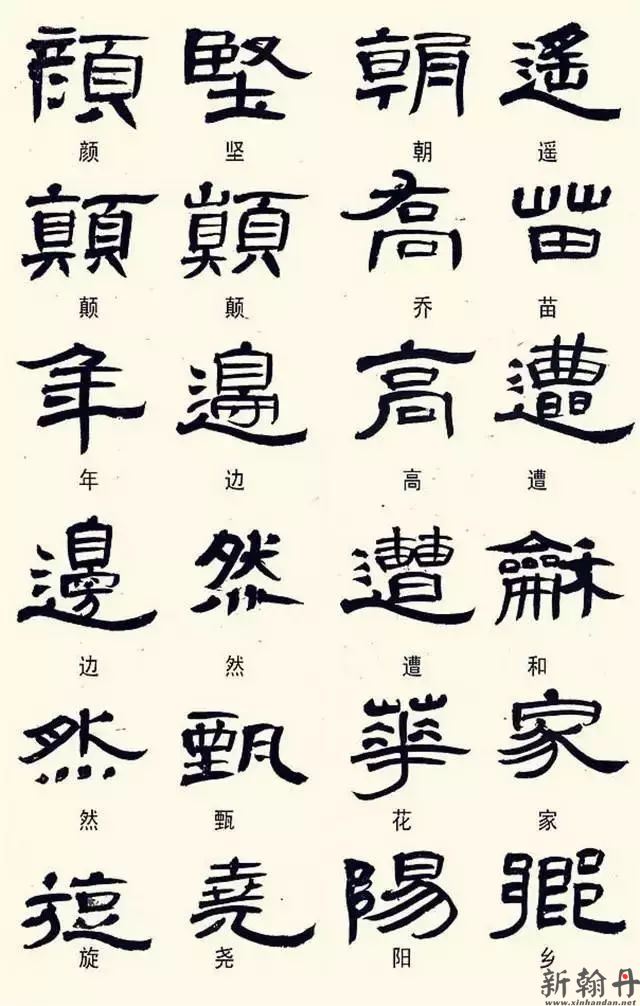 顔 堅 朝 遥
颜 坚 朝 遥
顛 顛 喬 苗
颠 颠 乔 苗
年 邊 高 遭
年 边 高 遭
邊 然 遭 龢
边 然 遭 和
然 甄 華 家
然 甄 花 家
旋 堯 陽 鄉
旋 尧 阳 乡
新翰丹
www.xinhandan.net